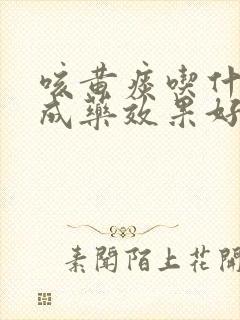 咳黄痰喫什
成藥效果好
素聞陌上花開